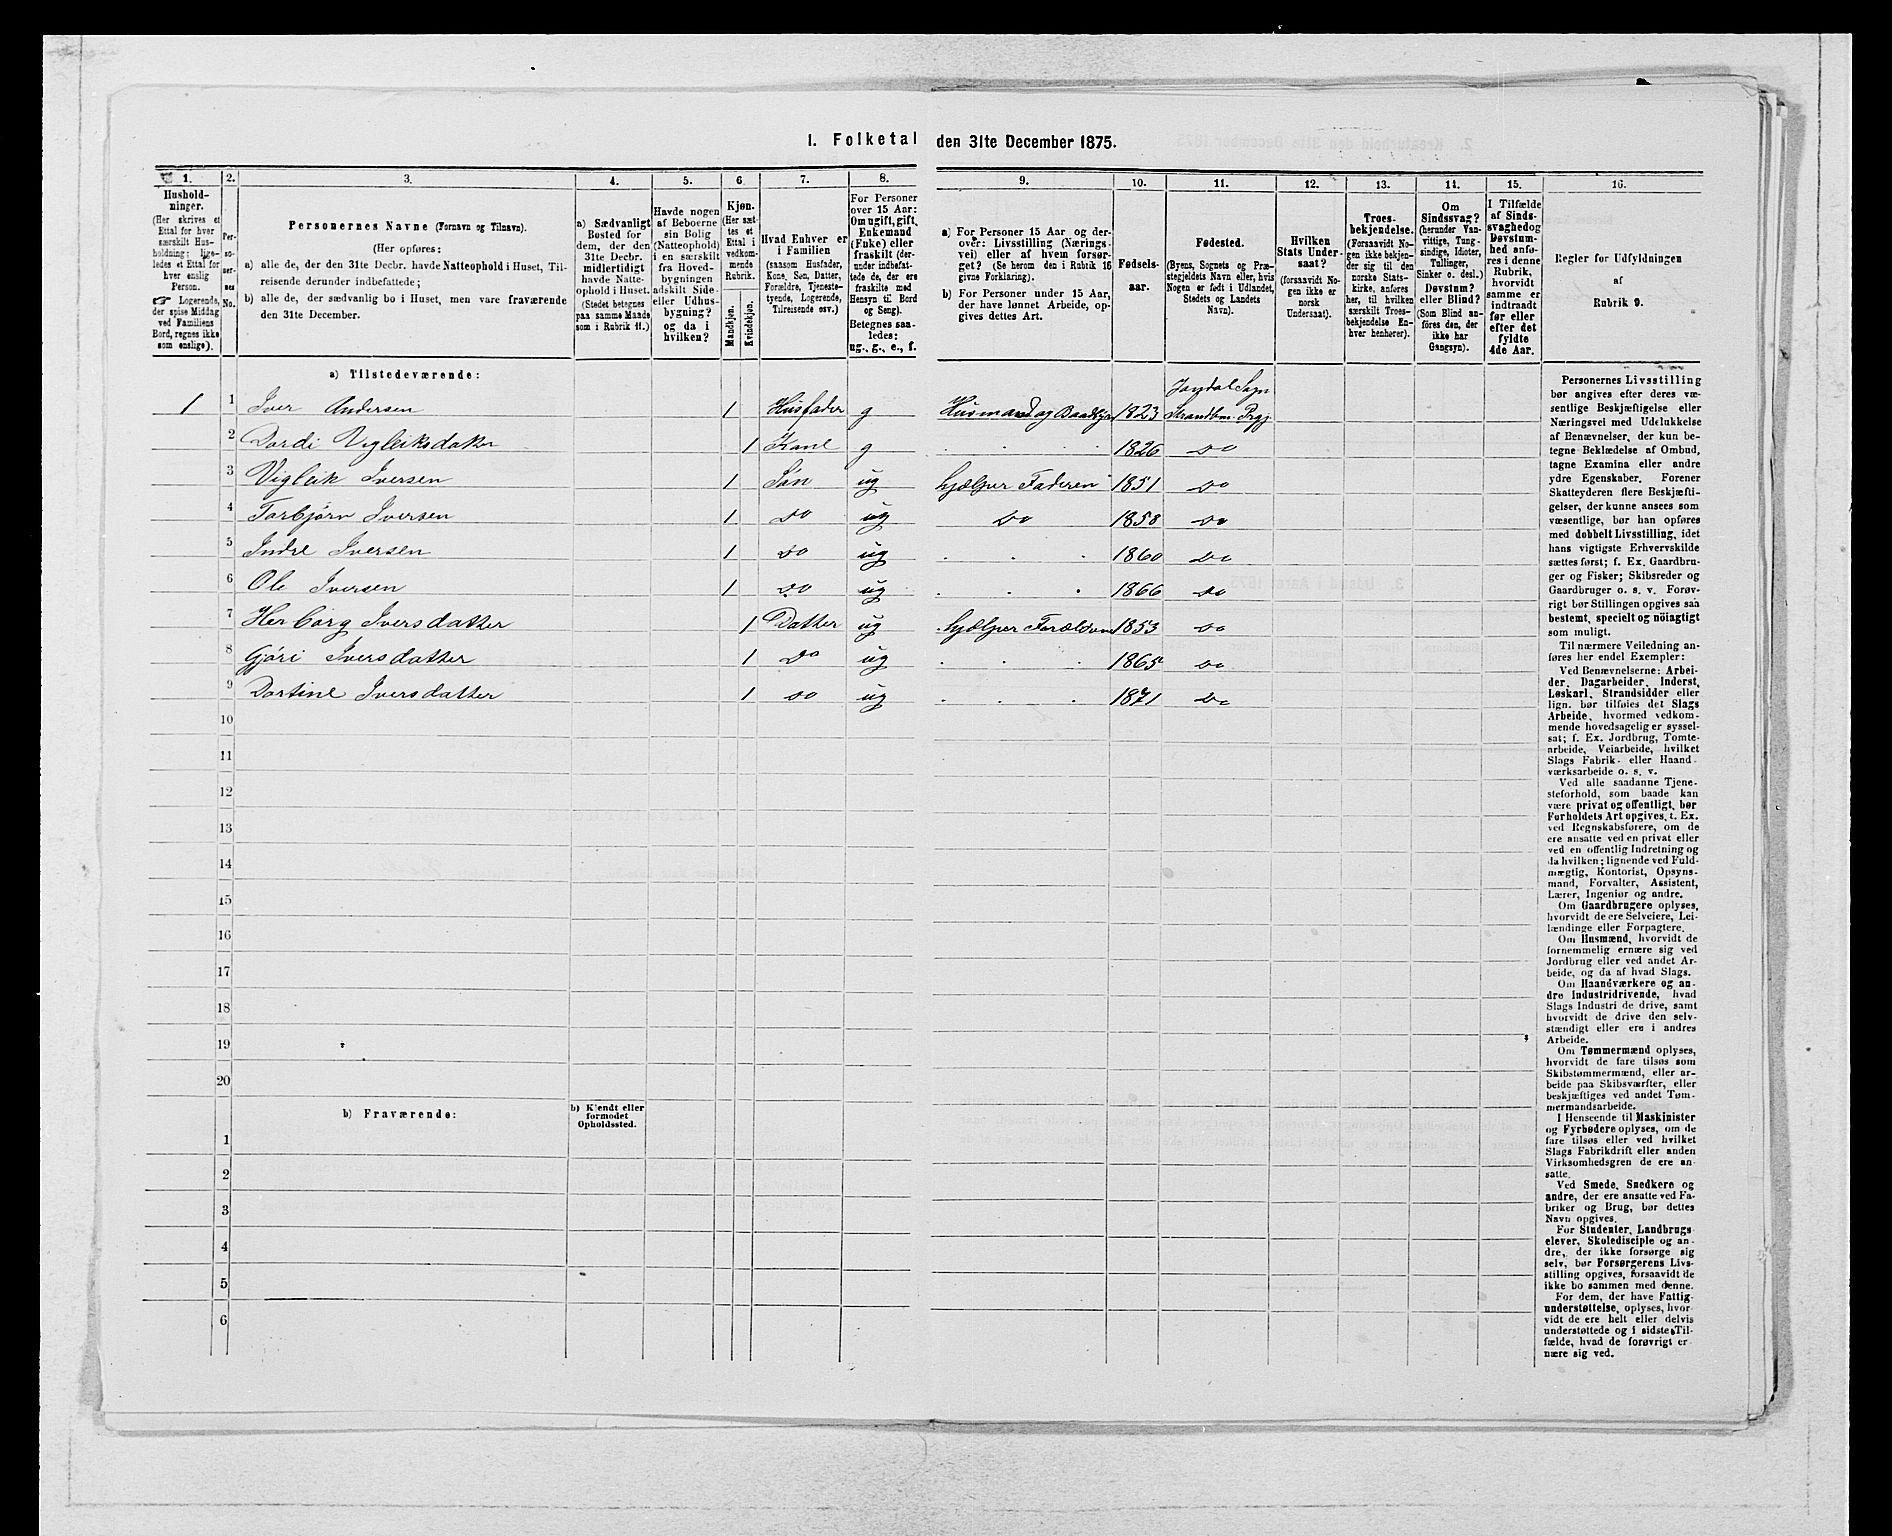 1. Folketal den 31te December 1875.
1.
Hushold-
ninger.
(Her skrives et
Ettal for hver
særskilt Hus-
holdning; lige-
ledes et Ettal for
hver enslig
Person.
☞ Logerende,
der spise Middag
ved Familiens
Bord, regnes ikke
som enslige).
2.
Per-
so-
ner-
nes
No.
3.
Personernes Navne (Fornavn og Tilnavn).
(Her opføres:
a) alle de, der den 31te Decbr. havde Natteophold i Huset, Til-
reisende derunder indbefattede;
b) alle de, der sædvanlig bo i Huset, men vare fraværende
den 31te December.
4.
a) Sædvanligt
Bosted for
dem, der den
31te Decbr.
midlertidigt
havde Natte-
ophold i Huset.
(Stedet betegnes
paa samme Maade
som i Rubrik 11.)
5.
Havde nogen
af Beboerne
sin Bolig
(Natteophold)
i en særskilt
fra Hoved-
bygningen
adskilt Side-
eller Udhus-
bygning?
og da i
hvilken?
6
Kjøn.
(Her sæt-
tes et
Ettal i
vedkom-
mende
Rubrik.
Mandkjøn.
Kvindekjøn.
7.
Hvad Enhver er
i Familien
(saasom Husfader,
Kone, Søn, Datter,
Forældre, Tjeneste-
tyende, Logerende,
Tilreisende osv.)
8.
For Personer
over 15 Aar:
Om ugift, gift,
Enkemand
(Enke) eller
fraskilt (der-
under indbefat-
tede de, der ere
fraskilte med
Hensyn til Bord
og Seng).
Betegnes saa-
ledes:
ug., g., e., f.
9.
a) For Personer 15 Aar og der-
over: Livsstilling (Nærings-
vei) eller af hvem forsør-
get? (Se herom den i Rubrik 16
givne Forklaring).
b) For Personer under 15 Aar,
der have lønnet Arbeide, op-
gives dettes Art.
10.
Fødsels-
aar.
11.
Fødested.
(Byens, Sognets og Præ-
stegjeldets Navn eller, hvis
Nogen er født i Udlandet,
Stedets og Landets
Navn).
12.
Hvilken
Stats Under-
saat?
(forsaavidt No-
gen ikke er
norsk
Undersaat).
13.
Troes-
bekjendelse.
(Forsaavidt No-
gen ikke bekjen-
der sig til den
norske Stats-
kirke, anføres
her, til hvilken
særskilt Troes-
bekjendelse En-
hver henhører).
14.
Om
Sindssvag?
(herunder Van-
vittige, Tung-
sindige, Idioter,
Tullinger,
Sinker o. desl.)
Døvstum?
eller Blind?
(Som Blind an-
føres den, der
ikke har
Gangsyn).
15.
I Tilfælde
af Sinds-
svaghed og
Døvstum-
hed anfø-
res i denne
Rubrik,
hvorvidt
samme er
indtraadt
før eller
efter det
fyldte
4de Aar.
16.
Regler for Udfyldningen
af
Rubrik 9.
a) Tilstedeværende:
1 1 Iver Andersen 1 Husfader g Husmand og 1823 Sogn
Strandbm. Prgj
2 Dordi Vigleiksdatter 1 Kone g . . . 1826 Do
3 Vigleik Iversen 1 Søn ug hjælper Faderen 1851 Do
4 Torbjørn Iversen 1 Do ug Do 1858 Do
5 Iversen 1 Do ug . . . 1860 Do
6 Ole Iversen 1 Do ug . . . 1866 Do
7 Herborg Iversdatter 1 Datter ug hjælper 1853 Do
8 Gjøri Iversdatter 1 Do ug . . . 1865 Do
9 Dortine Iversdatter 1 Do ug . . . 1871 Do
10
11
12
13
14
15
16
17
18
19
20
b) Fraværende:
b) Kjendt eller
formodet
Opholdssted.
1
2
3
4
5
6
Personernes Livsstilling
bør angives efter deres væ-
sentlige Beskjæftigelse eller
Næringsvei med Udelukkelse
af Benævnelser, der kun be-
tegne Beklædelse af Ombud,
tagne Examina eller andre
ydre Egenskaber. Forener
Skatteyderen flere Beskjæfti-
gelser, der kunne ansees som
væsentlige, bør han opføres
med dobbelt Livsstilling, idet
hans vigtigste Erhvervskilde
sættes først; f. Ex. Gaardbru-
ger og Fisker; Skibsreder og
Gaardbruger o. s. v. Forøv-
rigt bør Stillingen opgives saa
bestemt, specielt og nöiagtigt
som muligt.
Til nærmere Veiledning an-
føres her endel Exempler:
Ved Benævnelserne: Arbei-
der, Dagarbeider, Inderst,
Løskarl, Strandsidder eller
lign. bør tilføies det Slags
Arbeide, hvormed vedkom-
mende hovedsagelig er syssel-
sat; f. Ex. Jordbrug, Tomte-
arbeide, Veiarbeide, hvilket
Slags Fabrik- eller Haand-
værksarbeide o. s. v.
Ved alle saadanne Tjene-
steforhold, som baade kan
være privat og offentligt, bør
Forholdets Art opgives, t. Ex.
ved Regnskabsførere, om de
ere ansatte ved en privat eller
ved en offentlig Indretning og
da hvilken; lignende ved Fuld-
mægtig, Kontorist, Opsyns-
mand, Forvalter, Assistent,
Lærer, Ingeniør og andre.
Om Gaardbrugere oplyses,
hvorvidt de ere Selveiere, Lei-
lændinge eller Forpagtere.
Om Husmænd, hvorvidt de
fornemmelig ernære sig ved
Jordbrug eller ved andet Ar-
beide, og da af hvad Slags.
Om Haandværkere og an-
dre Industridrivende, hvad
Slags Industri de drive, samt
hvorvidt de drive den selv-
stændigt eller ere i andres
Arbeide.
Om Tømmermænd oplyses,
hvorvidt de fare tilsøs som
Skibstømmermænd, eller ar-
beide paa Skibsværfter, eller
beskjæftiges ved andet Tøm-
mermandsarbeide.
I Henseende til Maskinister
og Fyrbødere oplyses, om de
fare tilsøs eller ved hvilket
Slags Fabrikdrift eller anden
Virksomhedsgren de ere an-
satte.
Ved Smede, Snedkere og
andre, der ere ansatte ved Fa-
briker og Brug, bør dettes
Navn opgives.
For Studenter, Landbrugs-
elever, Skoledisciple og an-
dre, der ikke forsørge sig
selv, bør Forsørgerens Livs-
stilling opgives, forsaavidt de
ikke bo sammen med denne.
For dem, der have Fattig-
understøttelse, oplyses, hvor-
vidt de ere helt eller delvis
understøttede og i sidste Til-
fælde, hvad de forøvrigt er-
nære sig ved.